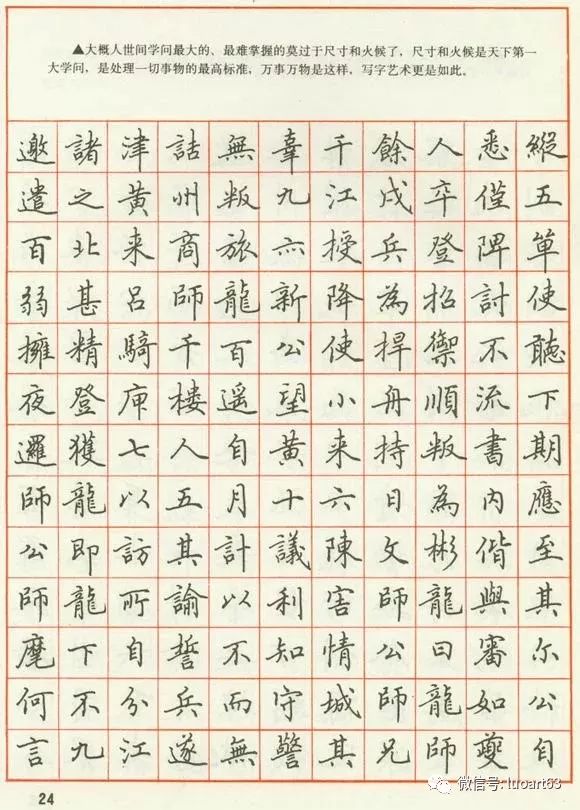 ▲大概人世间学问最大的、最难掌握的莫过于尺寸和火候了，尺寸和火候是天下第一
大学问，是处理一切事物的最高标准，万事万物是这样，写字艺术更是如此。
邀諸津詰無辜千餘人悉縱
遣之黄州叛九江戍卒僅五
百北来商旅六授兵登陴單
弱甚吕師龍新降為招討使
擁精騎千百公使捍禦不聽
夜登庳楼遥望小舟順流下
邏獲七人自黄来持叛書期
師龍以五月十六日為内應
公即訪其計議陳文彬偕至
師龍所諭以利害師龍與其
麾下自誓不知情公曰審尔
何不分兵而守城師龍如公
言九江遂無警其兄師夔自
24
微信号: luoart63